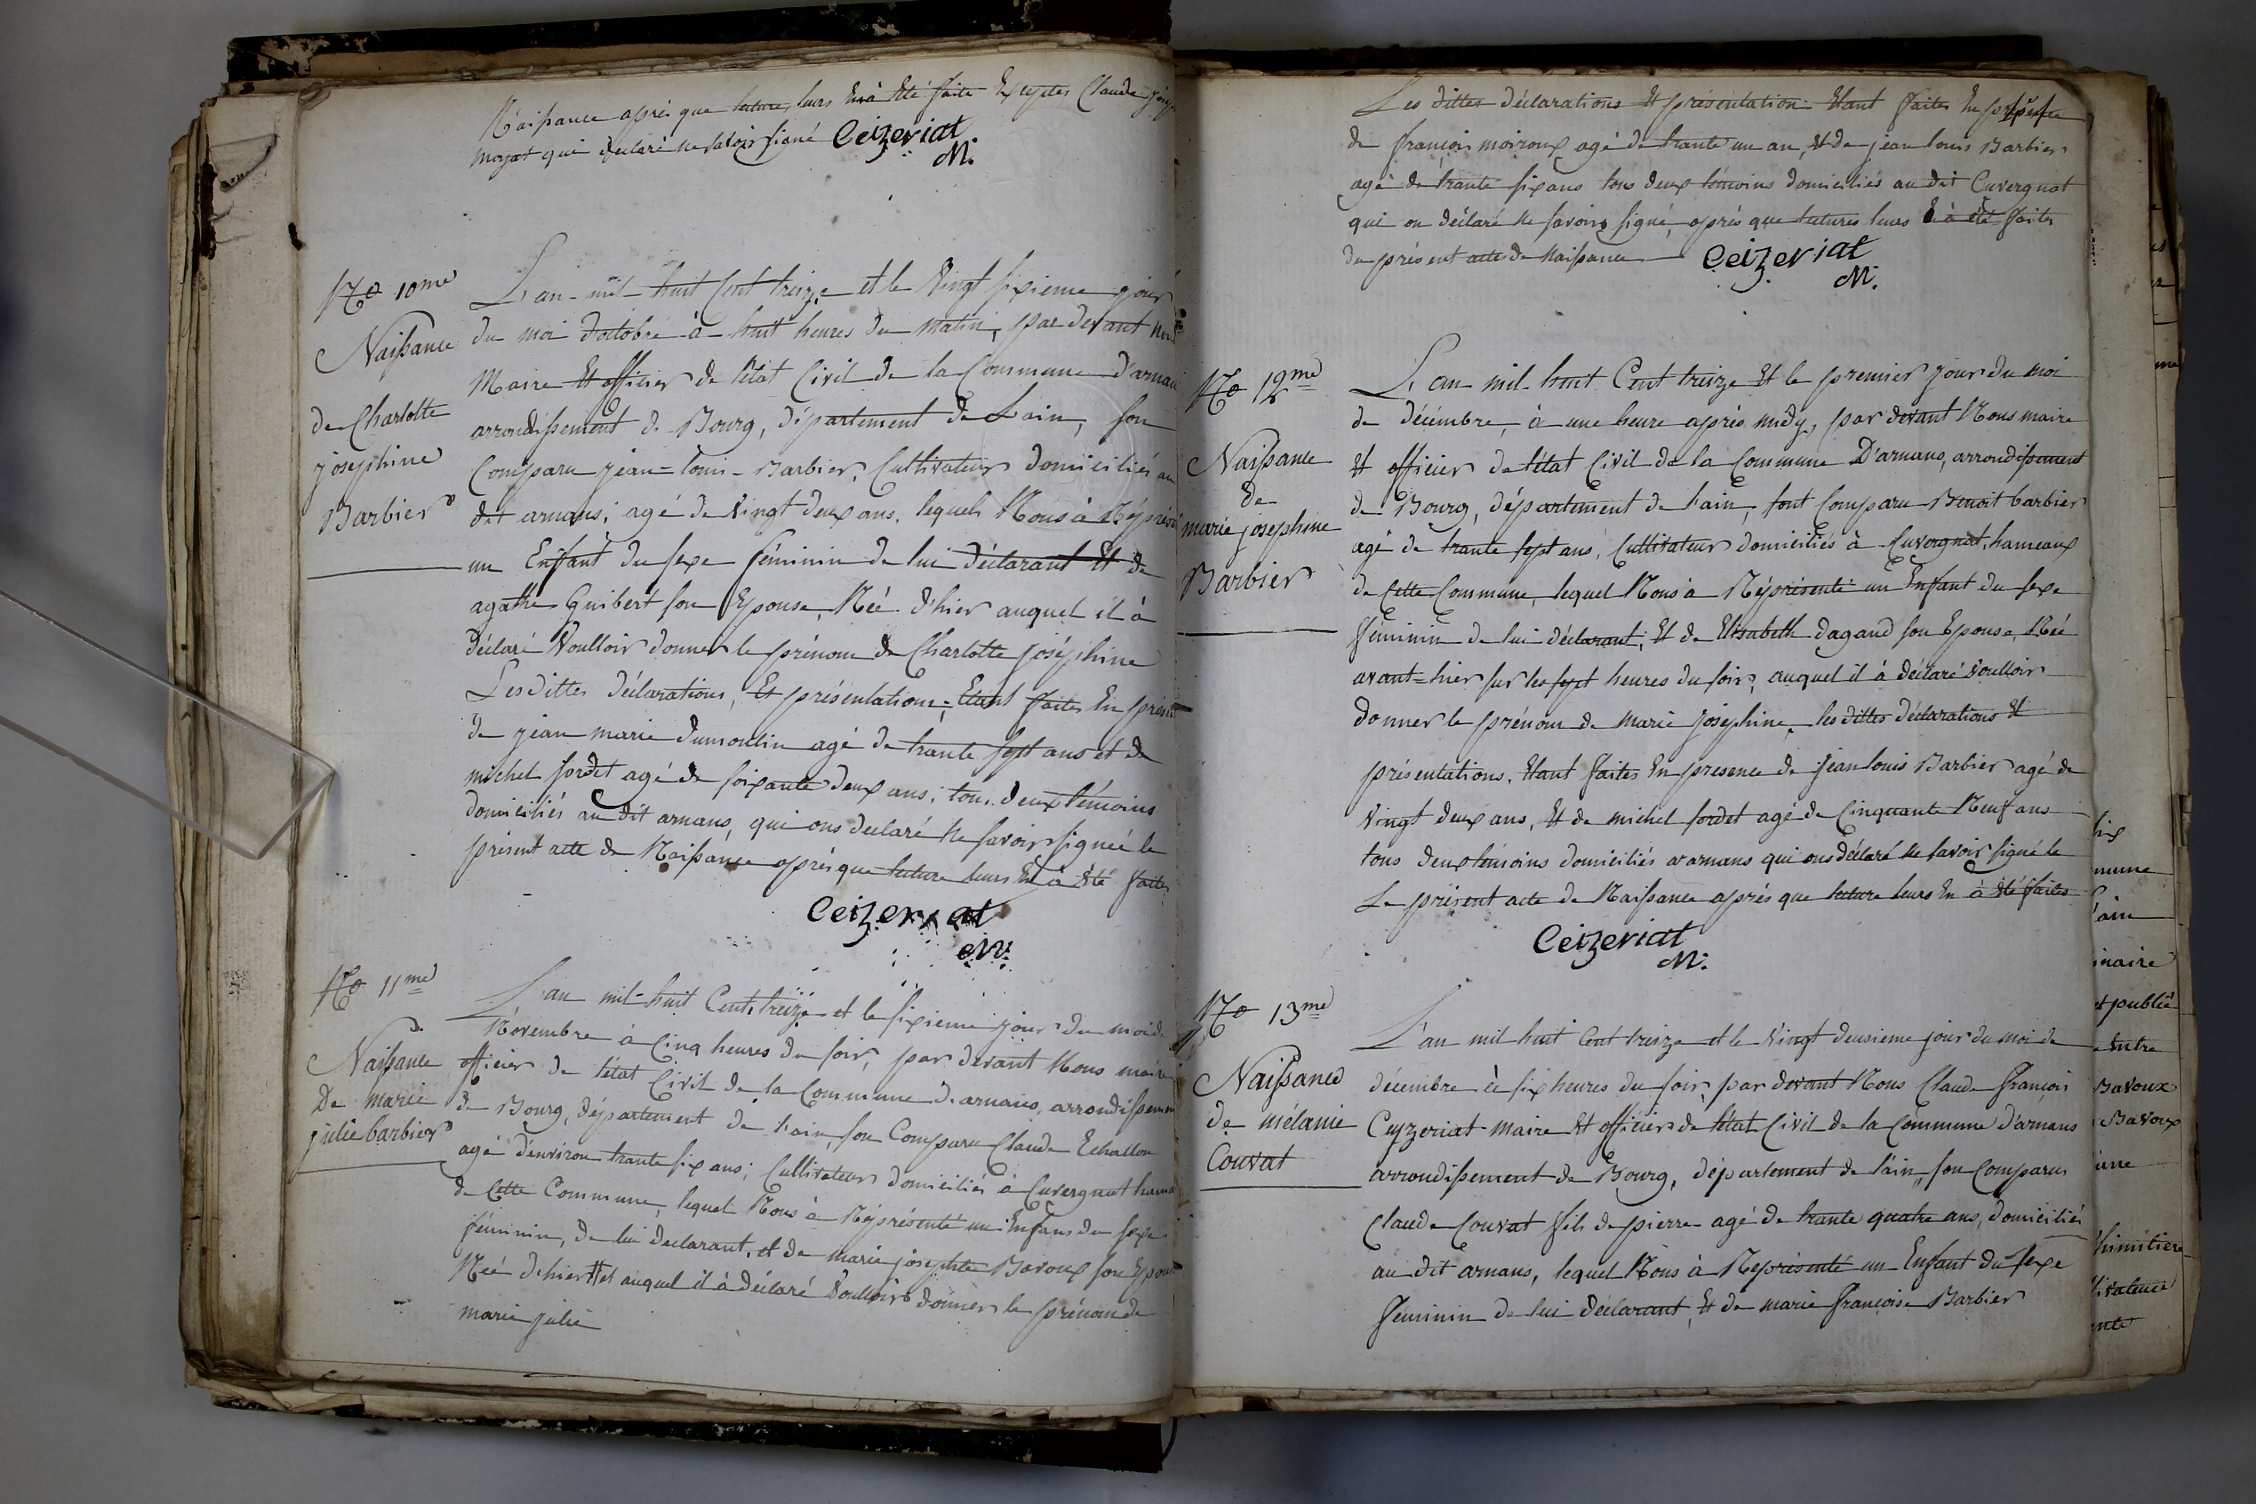 Naissance aprés que lecture leurs En à Eté faite Exeptés Claude
moyat qui declaré ne savoir signé Ceizeriat
M.
No 10me
Naissance
de Charlotte
josephine
Barbier
L'an mil huit Cent treize et le Vingt sixieme jour
du moi d'octobre à huit heures du matin, par devant nous
Maire Et officier de l'état Civil de la Commune d'arnans
arrondissement de Bourg, département de L'ain, son
Comparu jean=louis Barbier, Cultivateur domiciliés au
dit arnans, agé de Vingt deux ans, lequels Nous à Réprésenté
un Enfant du sexe féminin de lui déclarant Et de
agathe Guibert son Epouse, Née d'hier auquel il à
déclaré Voulloir donner le prénom de Charlotte joséphine
Les dittes déclarations, Et présentations, Etant faites En présence
de jean marie dumoulin agé de trante sept ans et de
michel fordet agé de soixante deux ans, tous deux témoins
domiciliés au dit arnans, qui ons declaré ne savoir signeé le
présent acte de Naissance aprés que lecture leurs En à été faites
Ceizeriat
M.
No 11me
Naissance
De marie
julie barbier
L'an mil huit Cent treize et le sixieme jour du moi de
Novembre à Cinq heures du soir, par devant Nous maire
officier de l'état Civil de la Commune d'arnans, arrondissement
de Bourg, département de l'ain, son Comparu Claude Echallon
agé d'environ trante six ans, Cultivateur domiciliés à Cuvergnat hameau
de Cette Commune, lequel Nous à Réprésenté un Enfans du sexe
féminin, de lui declarant, et de marie josephte Bavoux son Epouse
Née d'hier # et auquel il à déclaré Voulloir donner le prénom de
marie julie
Les dittes déclarations Et présentation Etant faites En présence
de françois moiroux agé de trante un an, Et de jean louis Barbier
agé de trante six ans tous deux témoins domiciliés au dit Cuvergnat
qui on déclaré ne savoir signé, aprés que lectures leurs En à été faites
du présent acte de Naissance Ceizeriat
M.
No 12me
Naissance
de
marie josephine
Barbier
L'an mil huit Cent treize Et le premier jour du moi
de décembre, à une heure aprés midy, par devant Nous maire
Et officier de l'état Civil de la Commune D'arnans, arrondissement
de Bourg, département de l'ain, sont Comparu Benoit barbier
agé de trante sept ans, Cultivateur domiciliés à Cuvergnat, hameaux
de Cette Commune, lequel Nous à Réprésenté un Enfant du sexe
féminin de lui déclarant, Et de Elisabeth dagand son Epouse, Née
avant=hier sur les sept heures du soir, auquel il à déclaré voulloir
donner le prénom de marie josephine, les dittes déclarations Et
présentations, Etant faites En presence de jean louis Barbier agé de
Vingt deux ans, Et de michel fordet agé de Cinquante Neuf ans
tous deux témoins domiciliés a arnans qui ons déclaré ne savoir signé le
Le présent acte de Naissance aprés que lecture leurs En à été faites
Ceizeriat
M.
No 13me
Naissance
de mélanie
Couvat
L'an mil huit Cent treize et le Vingt deusieme jour du moi de
décembre à six heures du soir, par devant Nous Claude françois
Ceyzeriat maire Et officier de l'état Civil de la Commune d'arnans
arrondissement de Bourg, département de l'ain, son Comparus
Claude Couvat fils de pierre agé de trante quatre ans, domiciliés
au dit arnans, lequel Nous à Représenté un Enfant du sexe
féminin de lui déclarant, Et de marie françoise Barbier
six
mune
l'ain
maire
et publié
Entre
Bavoux
Bavoux